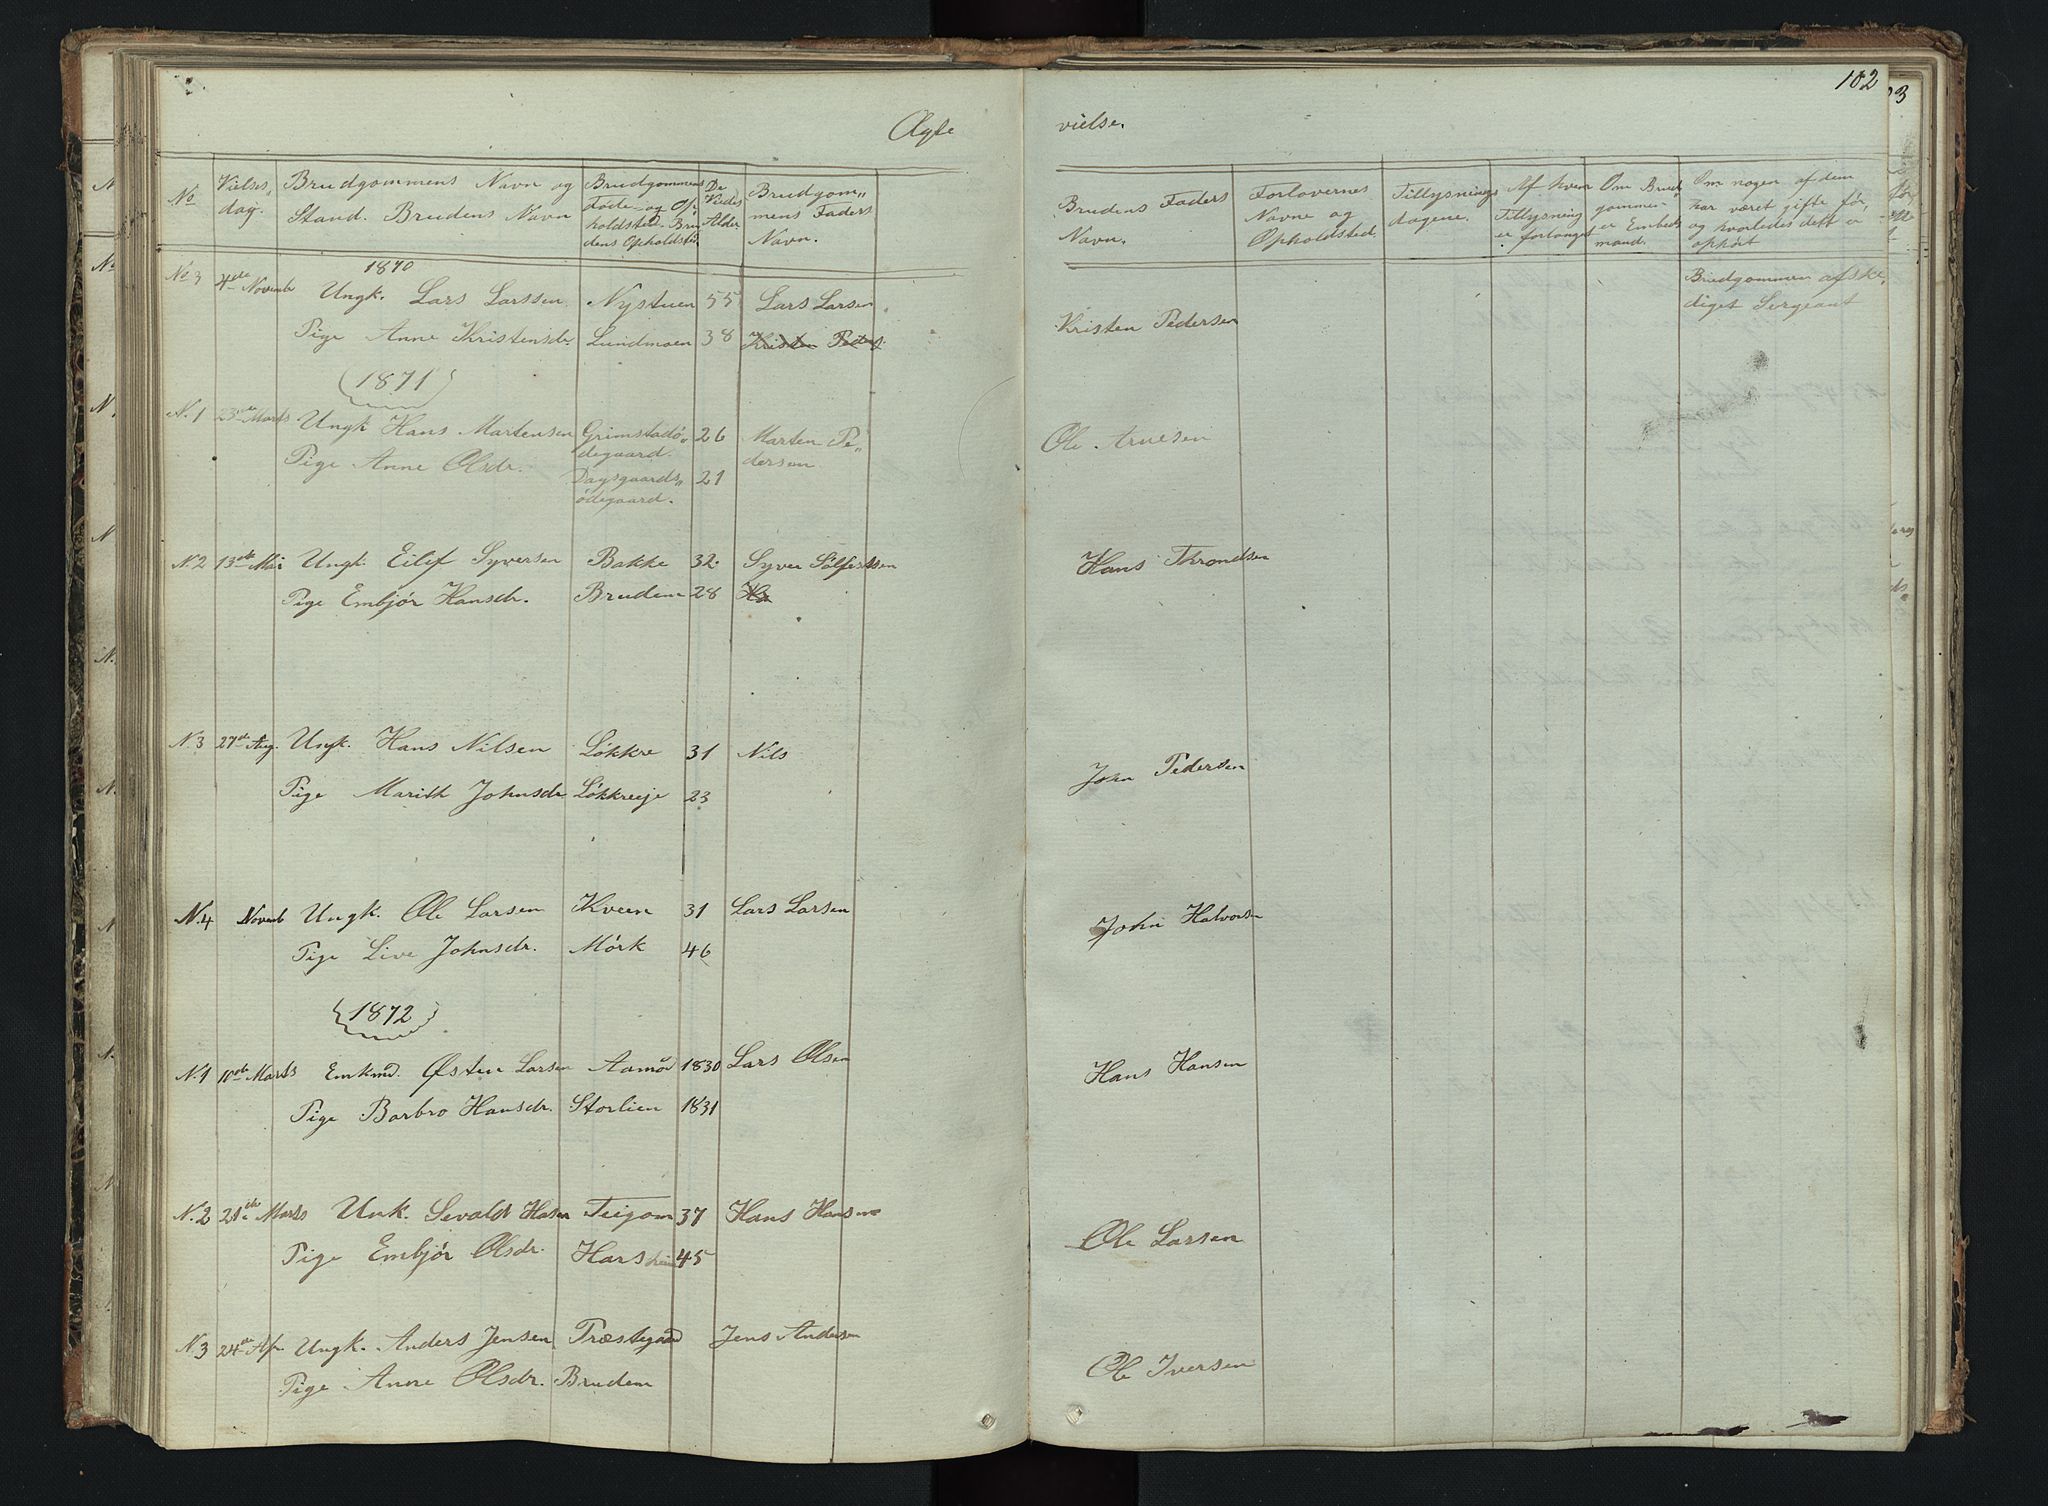 102
Ægte vielse.
No
Vielses„ dag.
Brudgommens Navn og Stand. Brudens Navn
Brudgommens Føde- og Op„ holdsted. Bru dens Opholdsted.
De Viedes Alder
Brudgom„ mens Faders Navn.
Brudens Faders Navn.
Forlovernes Navne og Opholdsted.
Tillysnings dagene.
Af hvem Tillysning er forlanget
Om Brud„ gommen er Embeds mand.
Om nogen af dem har været gifte før, og hvorledes dett er ophört
1870
No 3 4de Novemb Ungk. Lars Larssen Nystuen 55 Lars Larsen
Brudgommen afske„ diget Sergeant
Pige Anne Kristensdr. Lundmoen 38 Kristen Peders. Kristen Pedersen
1871
N. 1 23de Marts Ungk Hans Martensen Grimstadö„ degaard. 26 Marten Pe„ dersen
Pige Anne Olsdr. Dagsgaards„ ödegaard. 21 Ole
N. 2 13de Mai Ungk. Eilef Syversen Bakke 32 Syver
Pige Embjör Hansdr. Bruden 28 Hans Throndsen
N. 3 27de Aug. Ungk. Hans Nilsen Lökkre 31 Nils
Pige Marith Johnsdr. Lökkreeje 23 John Pedersen
N. 4 Novemb Ungk. Ole Larsen Kveen 31 Lars Larsen
Pige Live Johnsdr. Mörk 46 John Halvorsen
1872
N. 1 10de Marts Enkmd. Østen Larsen Aamöd 1830 Lars Olsen
Pige Barbro Hansdr. Storlien 1831 Hans Hansen
N. 2 21de Marts Unk. Sevald Hansen Teigom 37 Hans Hansen
Pige Embjör Olsdr. Harsheim 45 Ole Larsen
N. 3 24de Apr Ungk. Anders Jensen Træstegaard Jens Andersen
Pige Anne Olsdr. Brudem Ole Iversen